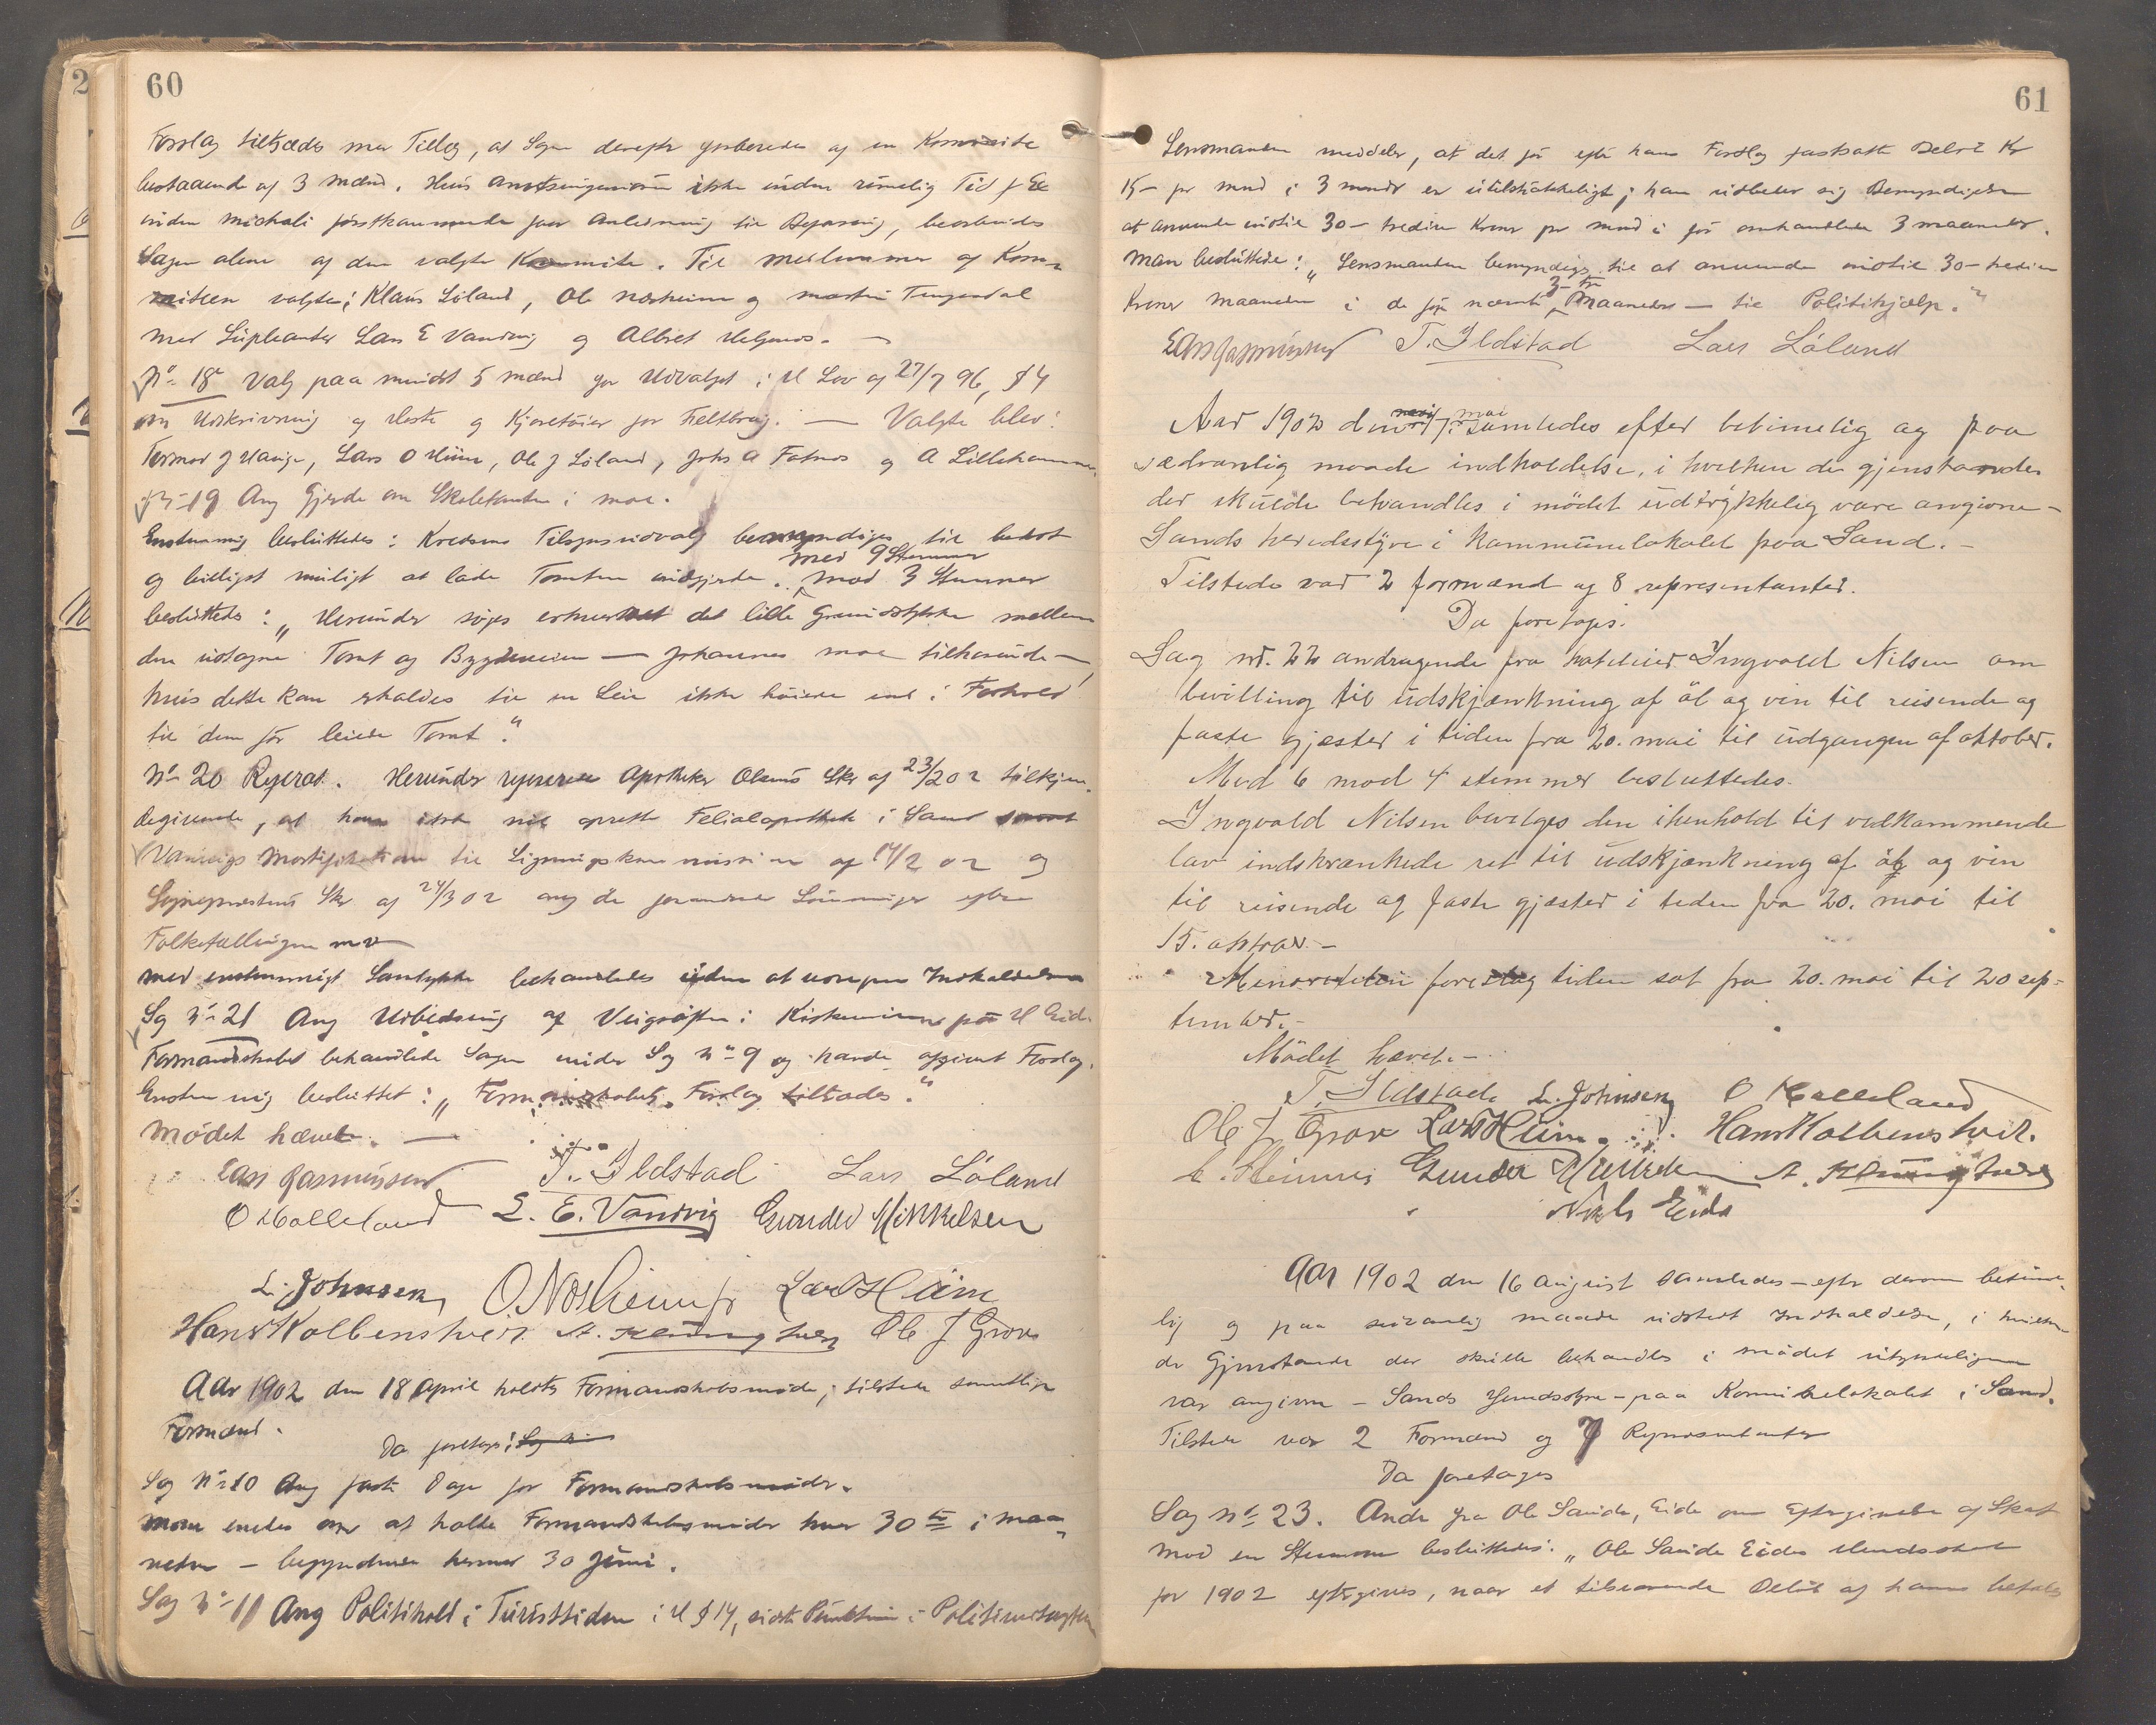 60
Forslag tiltrædes med Tillæg, at Sagen derefter forberedes af en Kommite
bestaaende af 3 Mænd. Hvis Amtsingeniøren ikke inden rimelig Tid f Ex
inden Michali førstkommende faar Anledning til Befaring, bearbeides
Sagen alene af den valgte Kommite. Til Medlemmer af Kom-
miteen valgtes: Klaus Løland, Ole Næsheim og Martin Tengesdal
med Supleanter Lars E Vandvig og Albret Helgenæs. —
No 18 Valg paa mindst 5 Mænd for Udvalget i H Lov af 27/7 96, § 4
om Udskrivning af Heste og Kjøretøier for Feltbrug. — Valgte blev:
Tormod J Hauge, Lars O Hiim, Ole J Løland, Johs A Fatnes og A Lillehammer.
No 19 Ang Gjerde om Skoletomten i Moe.
Enstemmig besluttedes: Kredsens Tilsynsudvalg bemyndiges til bedst
med 9 Stemmer
og billigst muligt at lade Tomten indgjerde. mod 3 Stemmer
besluttedes: „Herunder søges erhvervet det lille Grundstykke mellem
den udtagne Tomt og Bygdeveien — Johannes Moe tilhørende —
hvis dette kan erholdes til en Leie ikke høiere end i Forhold
til den før leiede Tomt."
No 20 Referat. Herunder refereredes Apotheker Olsens Skr af 23/2 02 tilkjen-
degivende, at han ikke vil oprette Felialapothek i Sand samt
Vandvigs Mortifikation til Ligningskommission af 14/2 02 og
Sogneprestens Skr af 24/3 02 ang de forandrede Lønninger efter
Folketællingen m v
Med enstemmigt Samtykke behandledes uden at være paa Indkaldelsen
Sag No 21 Ang Udbedring af Veigrøften i Kirkeveien på H Eide.
Formandskabet behandlede Sagen under Sag No 9 og havde afgivet Forslag.
Enstemmig besluttet: „Formandskabets Forslag tiltrædes."
Mødet hævet. —
Lars Rasmussen T. Ildstad Lars Løland
O Kolleland L. E. Vandvig Gunder Mikkelsen
L. Johnsen O Næsheim Lars Hiim
Hans Kolbenstveit A. Klungtveit Ole J Grov
Aar 1902 den 18 April holdtes Formandskabsmøde; tilstede samtlige
Formænd.
Da foretoges: Sag No
Sag No 10 Ang faste Dage for Formandskabsmøder.
Man enedes om at holde Formandskabsmøder hver 30te i Maa-
neden — begyndende hermed 30 Juni.
Sag No 11 Ang Politihold i Turisttiden i H § 14, sidste Punktum i Politivedtægten
61
Lensmanden meddeler, at det før efter hans Forslag fastsatte Beløb Kr
15- pr Mnd i 3 Mndr er utilstrækkeligt; han udbeder sig Bemyndigelse
at anvende indtil 30- tredive Kroner pr Mnd i før omhandlede 3 Maaneder.
Man besluttede: „Lensmanden bemyndiges til at anvende indtil 30- tredive
3- tre
Kroner Maaneden i de før nævnte Maaneder — til Politihjælp."
Lars Rasmussen T. Ildstad Lars Løland
Aar 1902 den 17. mai samledes efter betimelig og paa
sædvanlig maade indkaldelse, i hvilken de gjenstander
der skulde behandles i mødet udtrykkelig vare angivne —
Sands heredsstyre i kommunelokalet paa Sand. —
Tilstede var 2 formænd og 8 representanter.
Da foretoges:
Sag nr. 22 andragende fra hoteleier Ingvald Nilsen om
bevilling til udskjænkning af øl og vin til reisende og
faste gjester i tiden fra 20. mai til udgangen af oktober.
Med 6 mod 4 stemmer besluttedes.
Ingvald Nilsen bevilges den ihenhold til vedkommende
lov indskrænkede ret til udskjænkning af øl og vin
til reisende og faste gjester i tiden fra 20. mai til
15. oktober. —
Minoriteten foreslog tiden sat fra 20. mai til 20 sep-
tember. —
Mødet hævet. —
T. Ildstad L. Johnsen O Kolleland
Ole J Grov Lars Hiim Hans Kolbenstveit.
Gunder Mikkelsen A. Klungtveit
Niels Eide
Aar 1902 den 16 August samledes — efter derom betime-
lig og paa sedvanlig Maade udstedt Indkaldelse, i hvilken
de Gjenstande der skulle behandles i Mødet udtrykkeligen
var angivne — Sands Herredsstyre — paa Kommunelokalet i Sand.
Tilstede var 2 Formænd og 7 Representanter
Da foretoges
Sag No 23. Andr fra Ole Sande, Eide om Eftergivelse af Skat
Mod en Stemme besluttedes: „Ole Sande Eides Herredsskat
for 1902 eftergives, naar et tilsvarende Beløb af hans betales